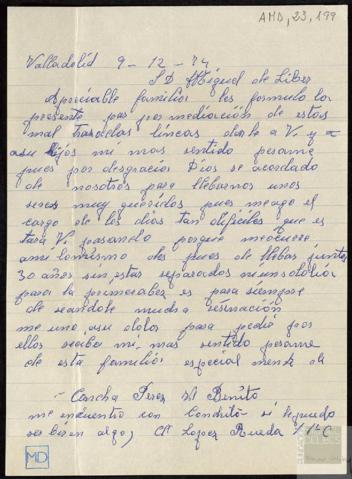 AMD, 23, 199
Valladolid 9-12-74
S D Miguel de Libes
Apreciable familia les formulo la
presente pas por mediación de estas
mal trasdelas lineas darle a V. y a
asu hijos mi mas sentido pesame
pues por desgracia Dios se acordado
de nosotros para llebarnos unos
seres muy queridos pues me ago el
cargo de los dias tan defisiles que es
tara V. pasando porque meocurre
ami lomismo des pues de llebar juntos
30 años sin estar separados
para la primeraber es para siempre
de seandole mucha resinación
me uno asu dolor para pedir por
ellos reciba mi mas sentido pesame
de esta familia especial mente de
Concha Perez Sn Benito
me encuentro con Condrito si le puedo
ser bir en algo, C/ Lopez Rueda 1 1º C
MD